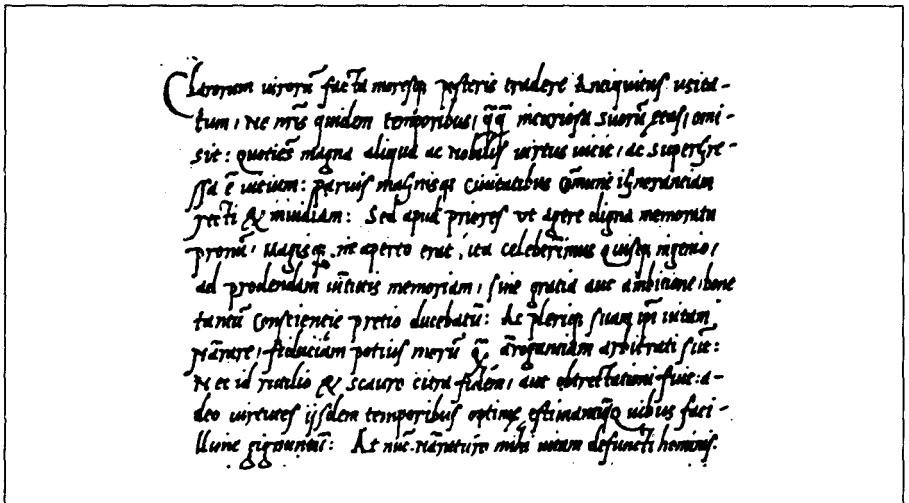 Clarorum uirorũ facta moresq; posteris tradere Antiquitus usita-
tum, Ne nr̃is quidem temporibus, q̃q̃ incuriosa suorũ etas, omi-
sit: quotiẽs magna aliqua ac Nobilis uirtus uicit, ac supergre-
ssa ẽ uitium: paruis magnisq; Ciuitatibus cõmune ignorantiam
recti & inuidiam: Sed apud priores ut agere digna memoratu
pronũ, Magisq; in aperto erat, ita Celeberr̃imus Quisq; ingenio,
ad prodendam uĩrtutis memoriam, sine gratia aut ambitione, bone
tantũ Conscientie pretio ducebatũ: Ac pleriq; suam ip̃i uitam
Nar̃rare, fiduciam potius morũ q̃, ar̃rogantiam arbitrati sũt:
Nec id rutilio & scauro citra fidem, aut obtrectationi fuit: a-
deo uirtutes ijsdem temporibus optime estimantũ, Quibus faci-
llime gignuntũ: At nũc Nar̃raturo mihi uitam defuncti hominis.